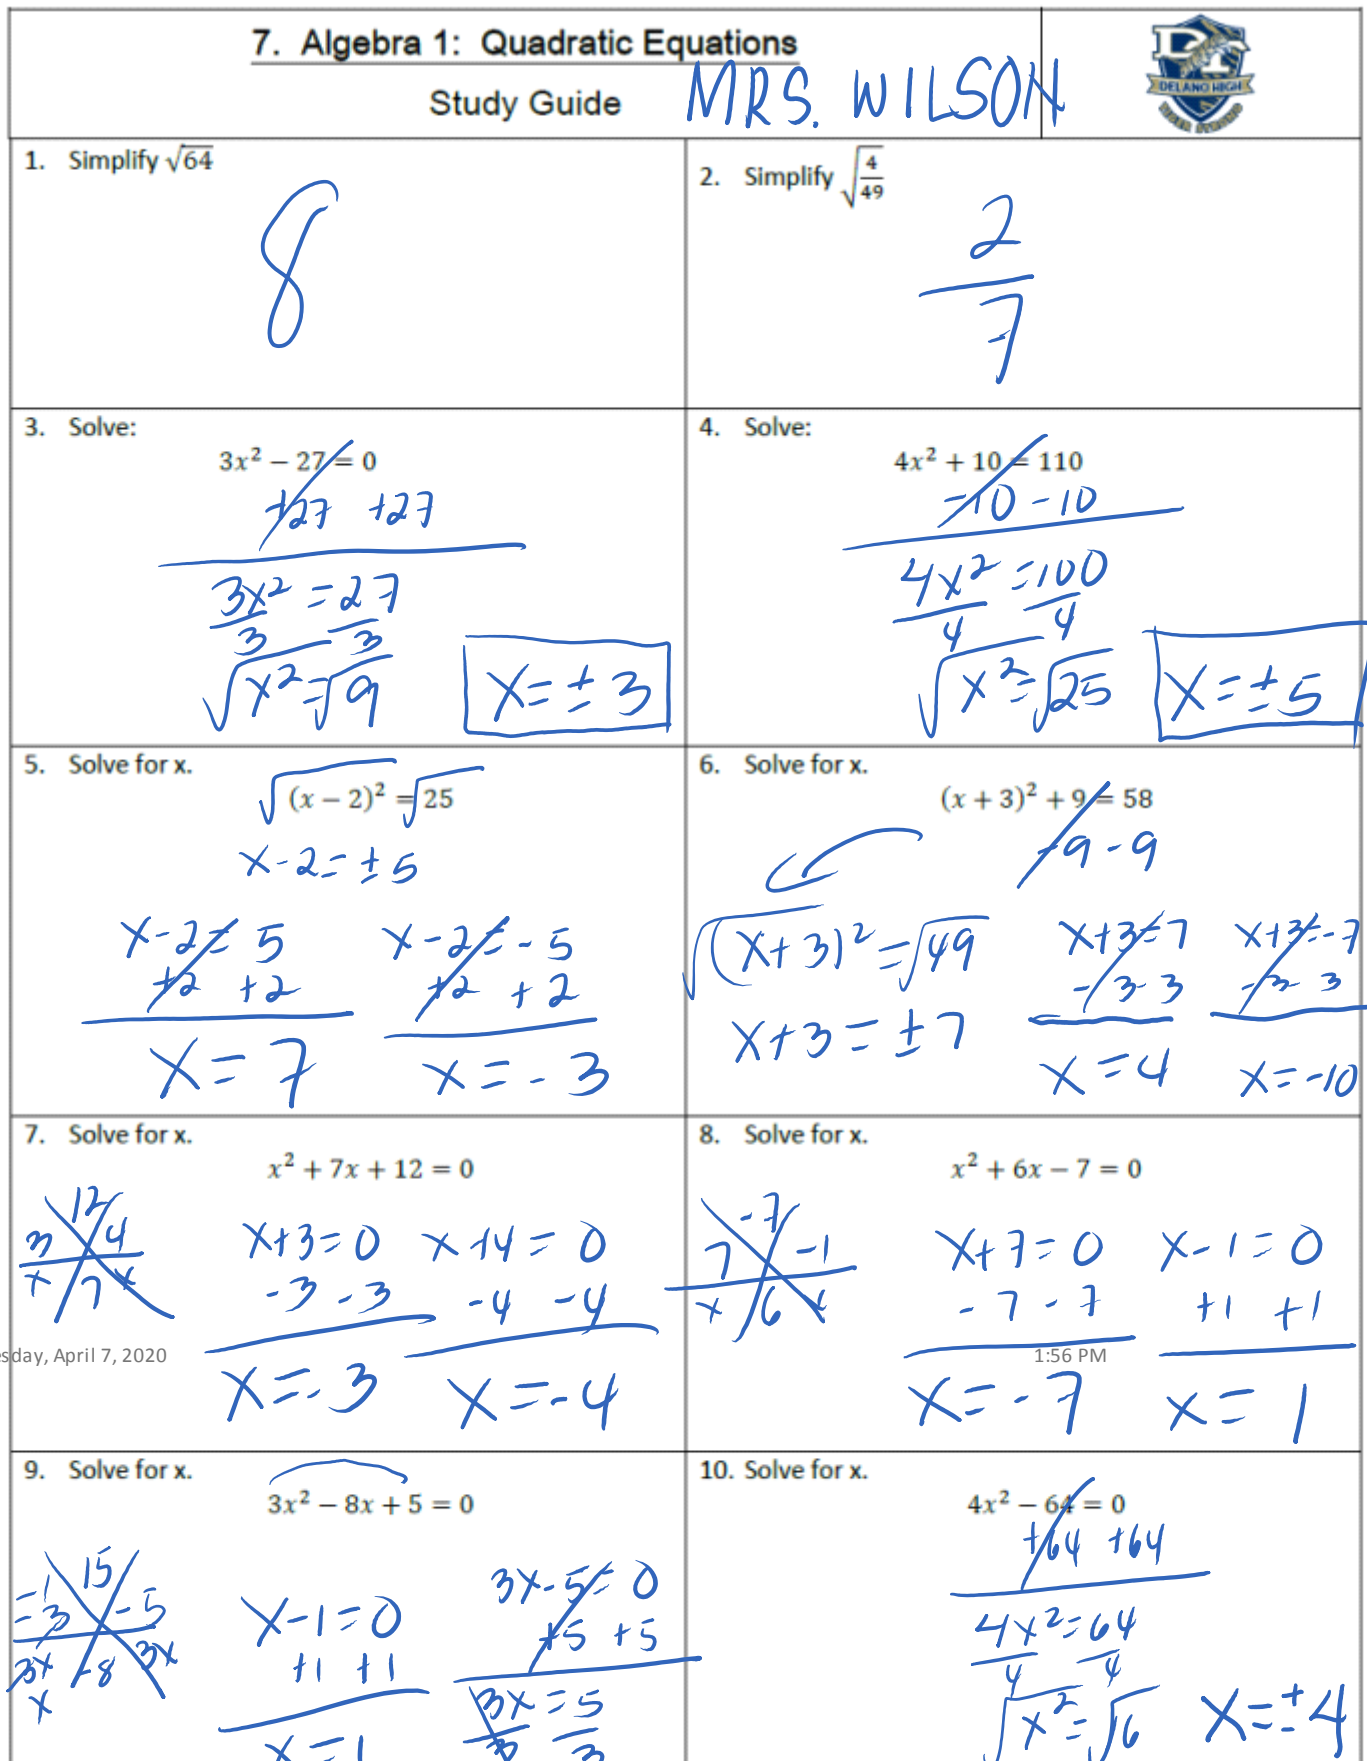 7. Algebra 1: Quadratic Equations
Study Guide MRS. WILSON
DELANO HIGH
1. Simplify √64
8
2. Simplify √(4/49)
2/7
3. Solve:
3x² − 27 = 0
+27 +27
3x² = 27
3 3
√x² = √9
x = ± 3
4. Solve:
4x² + 10 = 110
-10 -10
4x² = 100
4 4
√x² = √25
x = ± 5
5. Solve for x.
√(x − 2)² = √25
x - 2 = ± 5
x - 2 = 5 x - 2 = - 5
+2 +2 +2 +2
x = 7 x = - 3
6. Solve for x.
(x + 3)² + 9 = 58
-9 - 9
√(x + 3)² = √49
x + 3 = ± 7
x+3=7 x+3=-7
-3 -3 -3 3
x = 4 x = -10
7. Solve for x.
x² + 7x + 12 = 0
12
3 4
x 7 x
x+3=0 x+4=0
-3 -3 -4 -4
x = -3 x = -4
8. Solve for x.
x² + 6x − 7 = 0
-7
7 -1
x 6 x
x+7=0 x-1=0
-7 -7 +1 +1
x = -7 x = 1
sday, April 7, 2020
1:56 PM
9. Solve for x.
3x² − 8x + 5 = 0
15
-1
-3 -5
3x -8 3x
x
x-1=0
+1 +1
x=1
3x-5=0
+5 +5
3x=5
3 3
10. Solve for x.
4x² − 64 = 0
+64 +64
4x² = 64
4 4
√x² = √16
x = ± 4